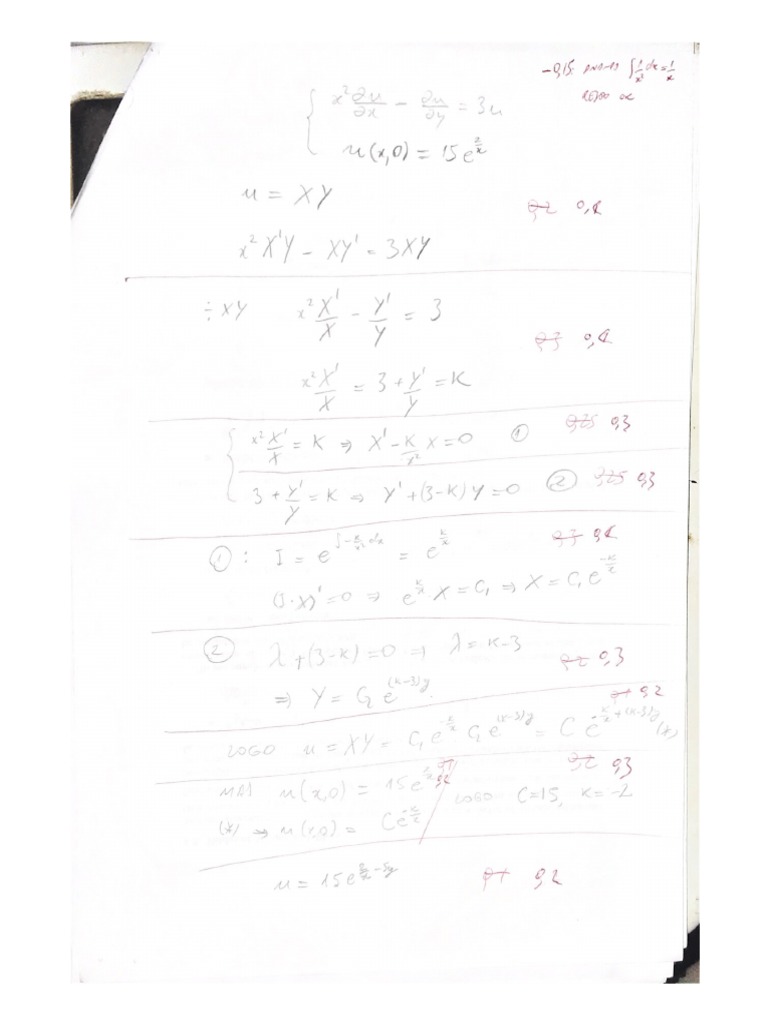 -0,15: ∫ 1/x² dx = 1/x
{ x² ∂u/∂x - ∂u/∂y = 3u
u(x,0) = 15e^(2/x)
u = XY
0,2 0,4
x² X'Y - XY' = 3XY
÷ XY x² X'/X - Y'/Y = 3
0,3 0,4
x² X'/X = 3 + Y'/Y = K
{ x² X'/X = K ⇒ X' - K/x² X = 0 ① 0,25 0,3
3 + Y'/Y = K ⇒ Y' + (3-K) Y = 0 ② 0,25 0,3
①: I = e^(∫ -K/x² dx) = e^(K/x) 0,3 0,4
(I·X)' = 0 ⇒ e^(K/x) X = C₁ ⇒ X = C₁ e^(-K/x)
② λ + (3-K) = 0 ⇒ λ = K-3
0,2 0,3
⇒ Y = C₂ e^((K-3)y)
0,1 0,2
LOGO u = XY = C₁ e^(-K/x) C₂ e^((K-3)y) = C e^(-K/x + (K-3)y) (*)
0,2 0,3
MAS u(x,0) = 15e^(2/x) 0,1 0,2 LOGO C=15, K=-2
(*) ⇒ u(x,0) = C e^(-K/x)
u = 15e^(2/x - 5y) 0,1 0,2